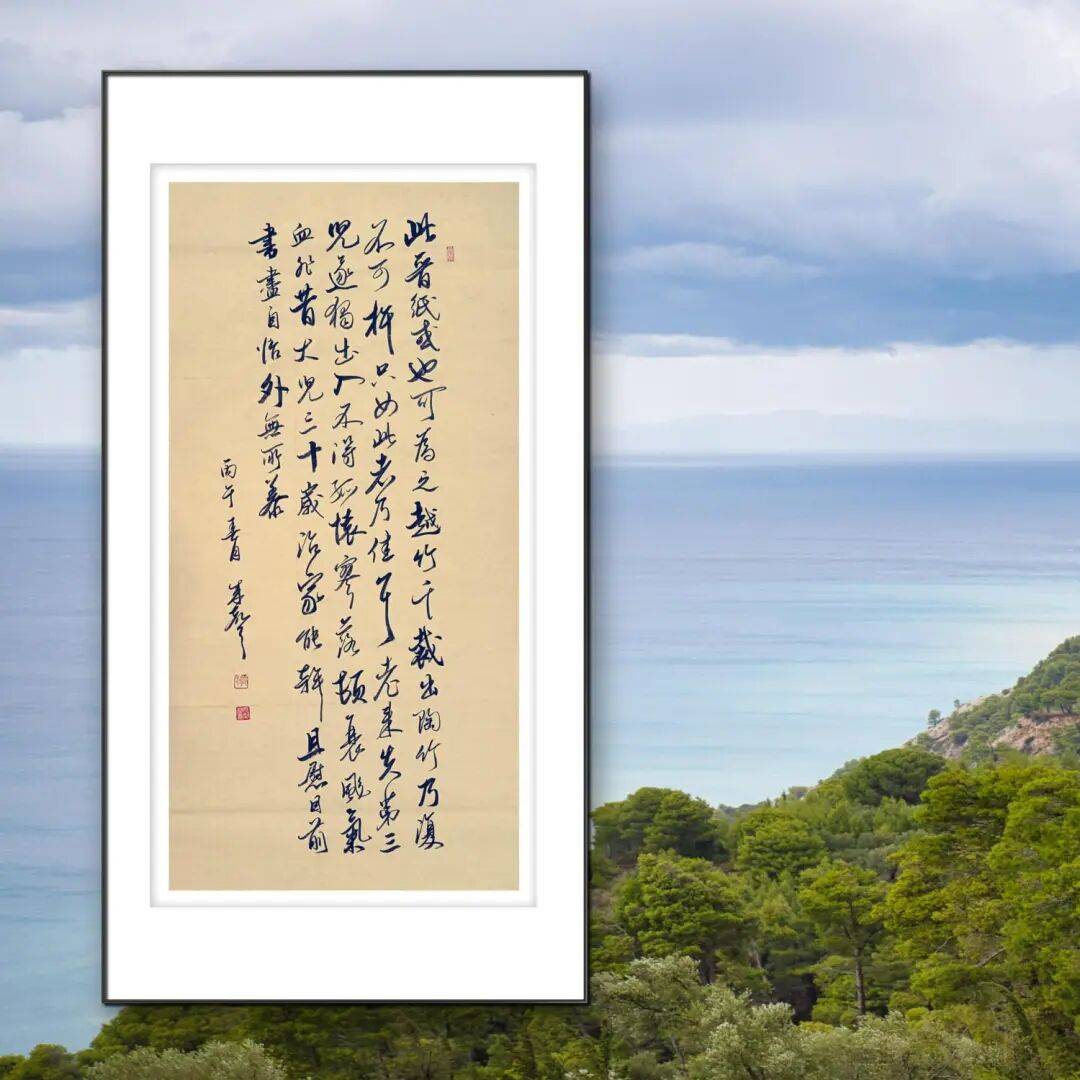 此晉紙式也可為之越竹千裁出陶竹乃復
不可杵只如此者乃佳耳老來失第三
兒遂獨出入不得孤懷寥落頓衰颯氣
血非昔大兒三十歲治家能幹且慰目前
書畫自怡外無所慕
丙午春月